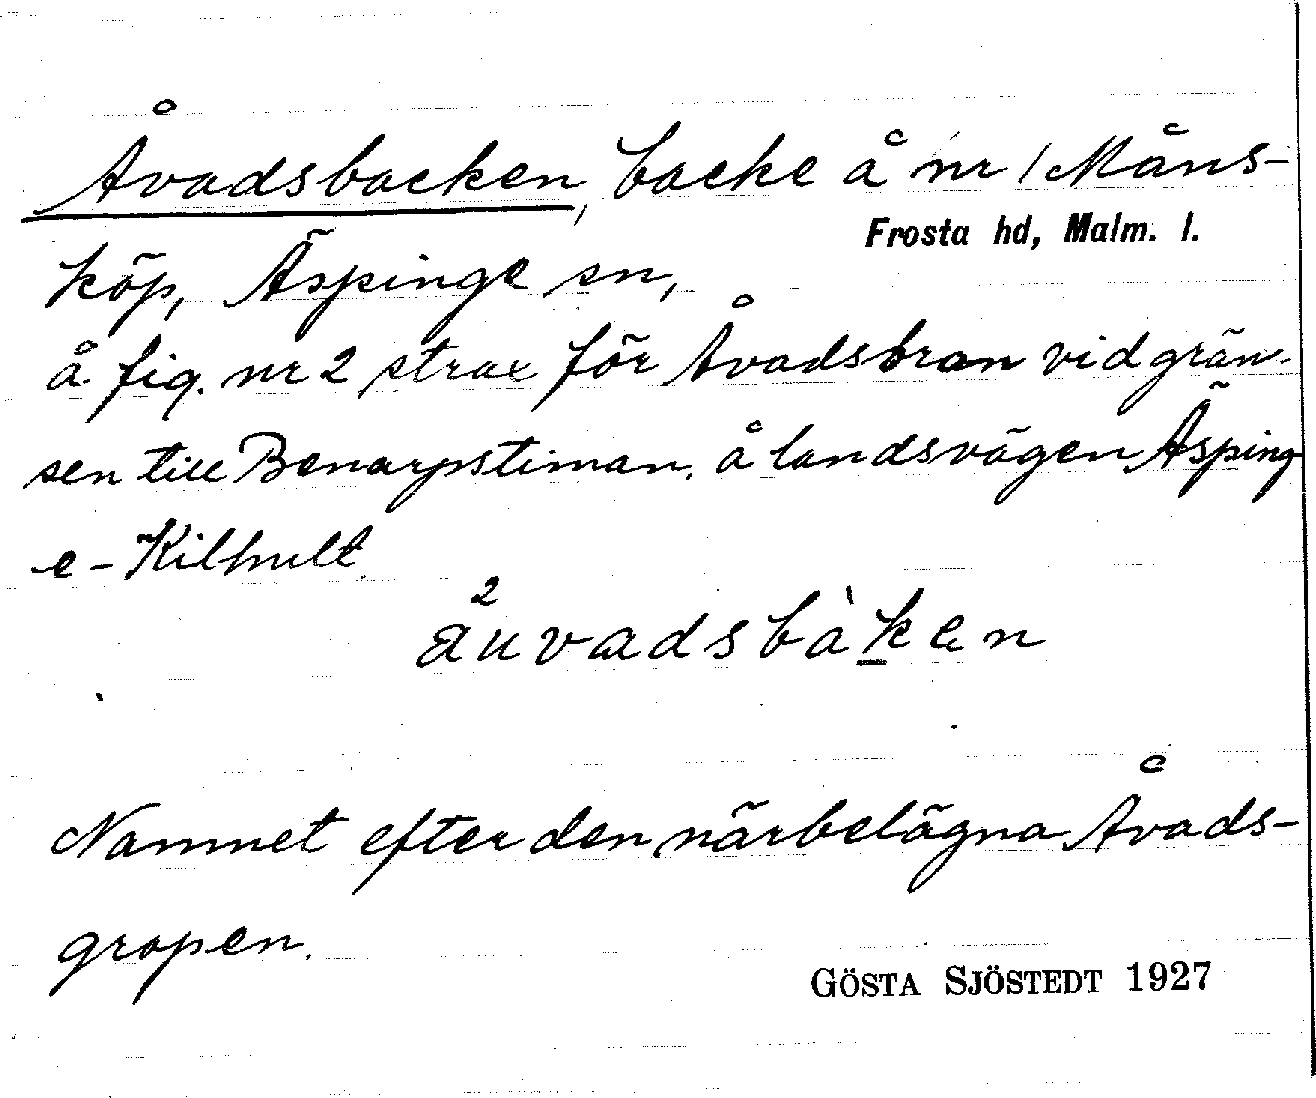 Åvadsbacken, backe å nr 1 Måns-
Frosta hd, Malm. l.
köp, Äspinge sn,
å fig. nr 2 strax för Åvadsbran vid grän-
sen till Benarpstiman, å landsvägen Äsping
e - Kilhult.
å²uvadsbàken
Namnet efter den närbelägna Åvads-
gropen.
GÖSTA SJÖSTEDT 1927